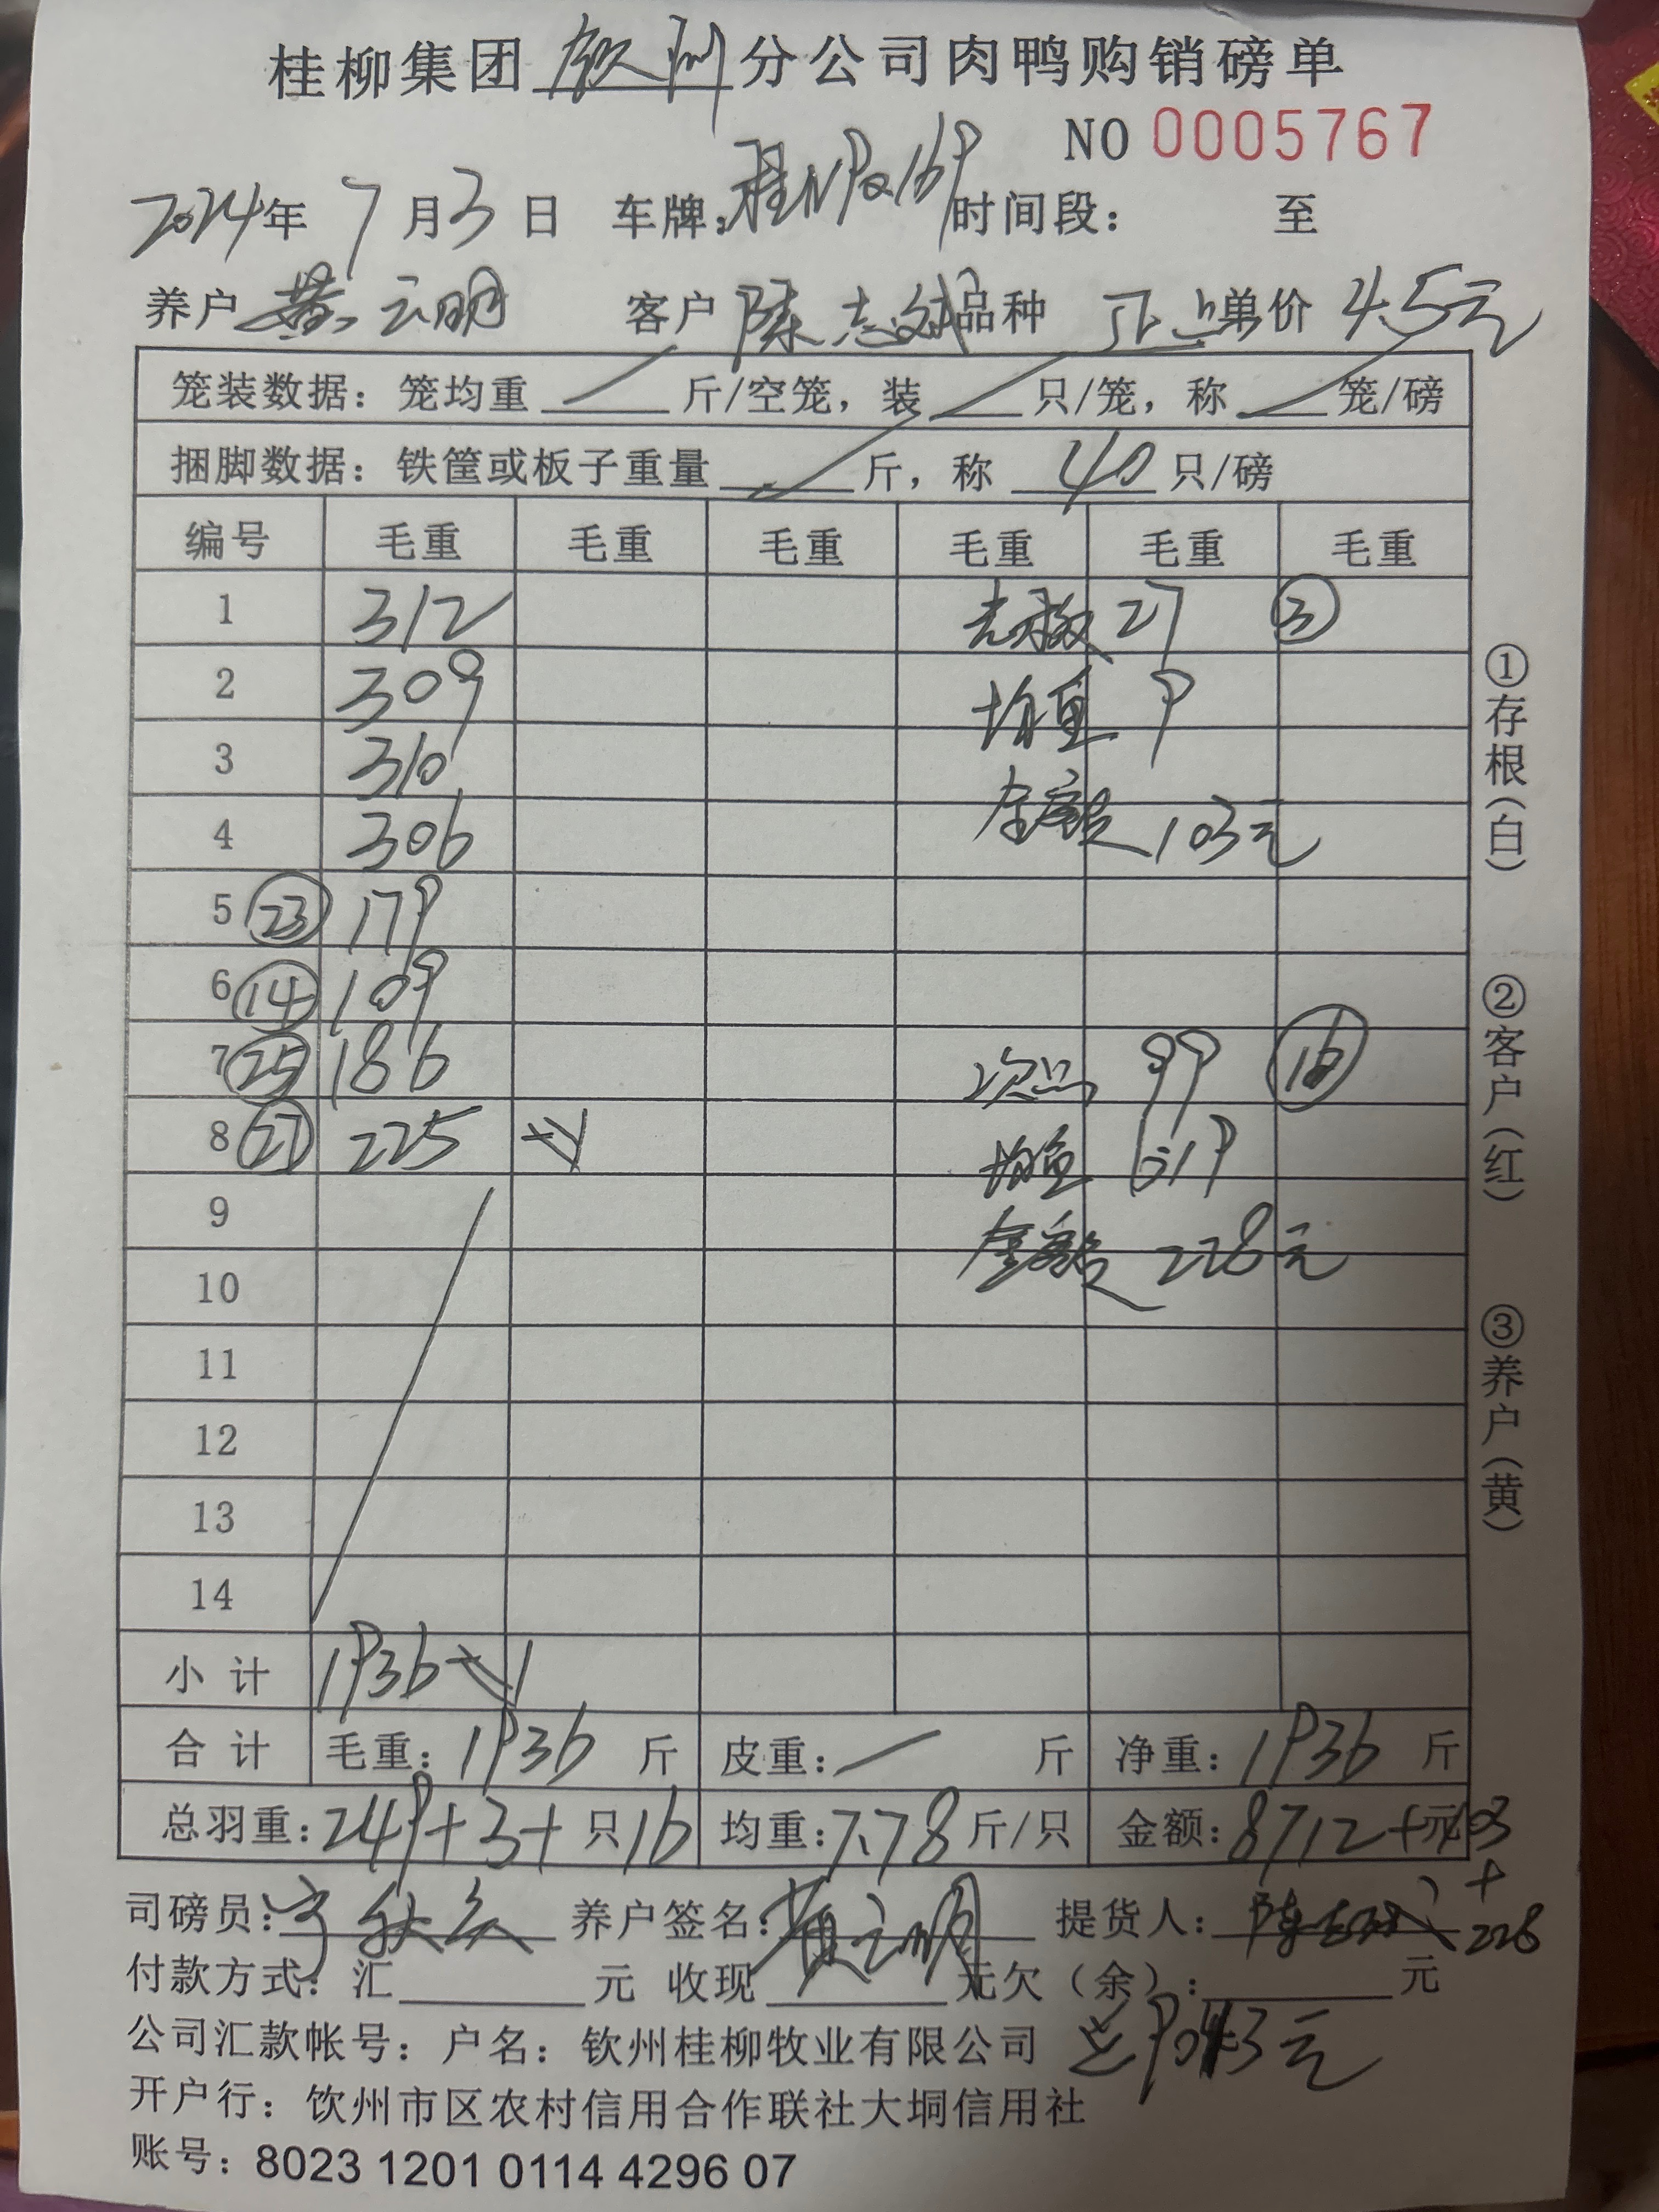 桂柳集团 钦州 分公司肉鸭购销磅单
NO 0005767
2024年 7月3日 车牌: 时间段: 至
养户 黄云明 客户 陈志斌 品种 正品 单价 4.5元
笼装数据: 笼均重 / 斤/空笼, 装 / 只/笼, 称 / 笼/磅
捆脚数据: 铁筐或板子重量 / 斤, 称 40 只/磅
编号 毛重 毛重 毛重 毛重 毛重 毛重
1 312 27 ③
2 309 均重 9
3 310
4 306 金额 103元
5 ㉓ 179
6 ⑭ 109
7 ㉕ 186 次品 99 ⑯
8 ㉗ 225 均重 6.19
9
10 金额 228元
11
12
13
14
小计 1936
合计 毛重: 1936 斤 皮重: 一 斤 净重: 1936 斤
总羽重: 249+3+ 只 16 均重: 7.78 斤/只 金额: 8712+元103
+
228
司磅员: 养户签名: 黄云明 提货人: 陈志斌
付款方式: 汇 元 收现 元欠(余): 元
公司汇款帐号: 户名: 钦州桂柳牧业有限公司 总9043元
开户行: 钦州市区农村信用合作联社大垌信用社
账号: 8023 1201 0114 4296 07
①存根(白)
②客户(红)
③养户(黄)